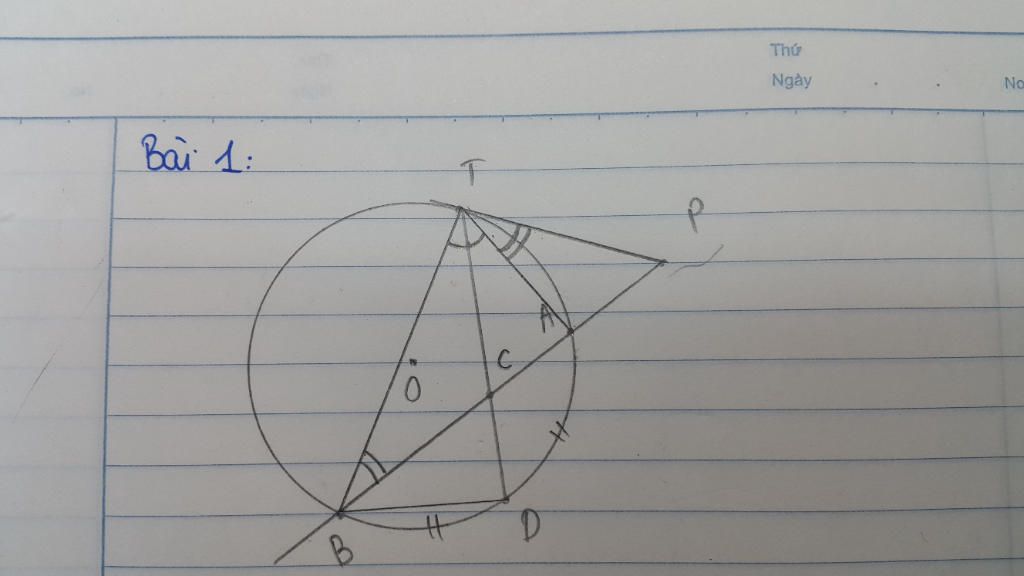 Thứ
Ngày
No
Bài 1:
T
P
A
C
O
B
D